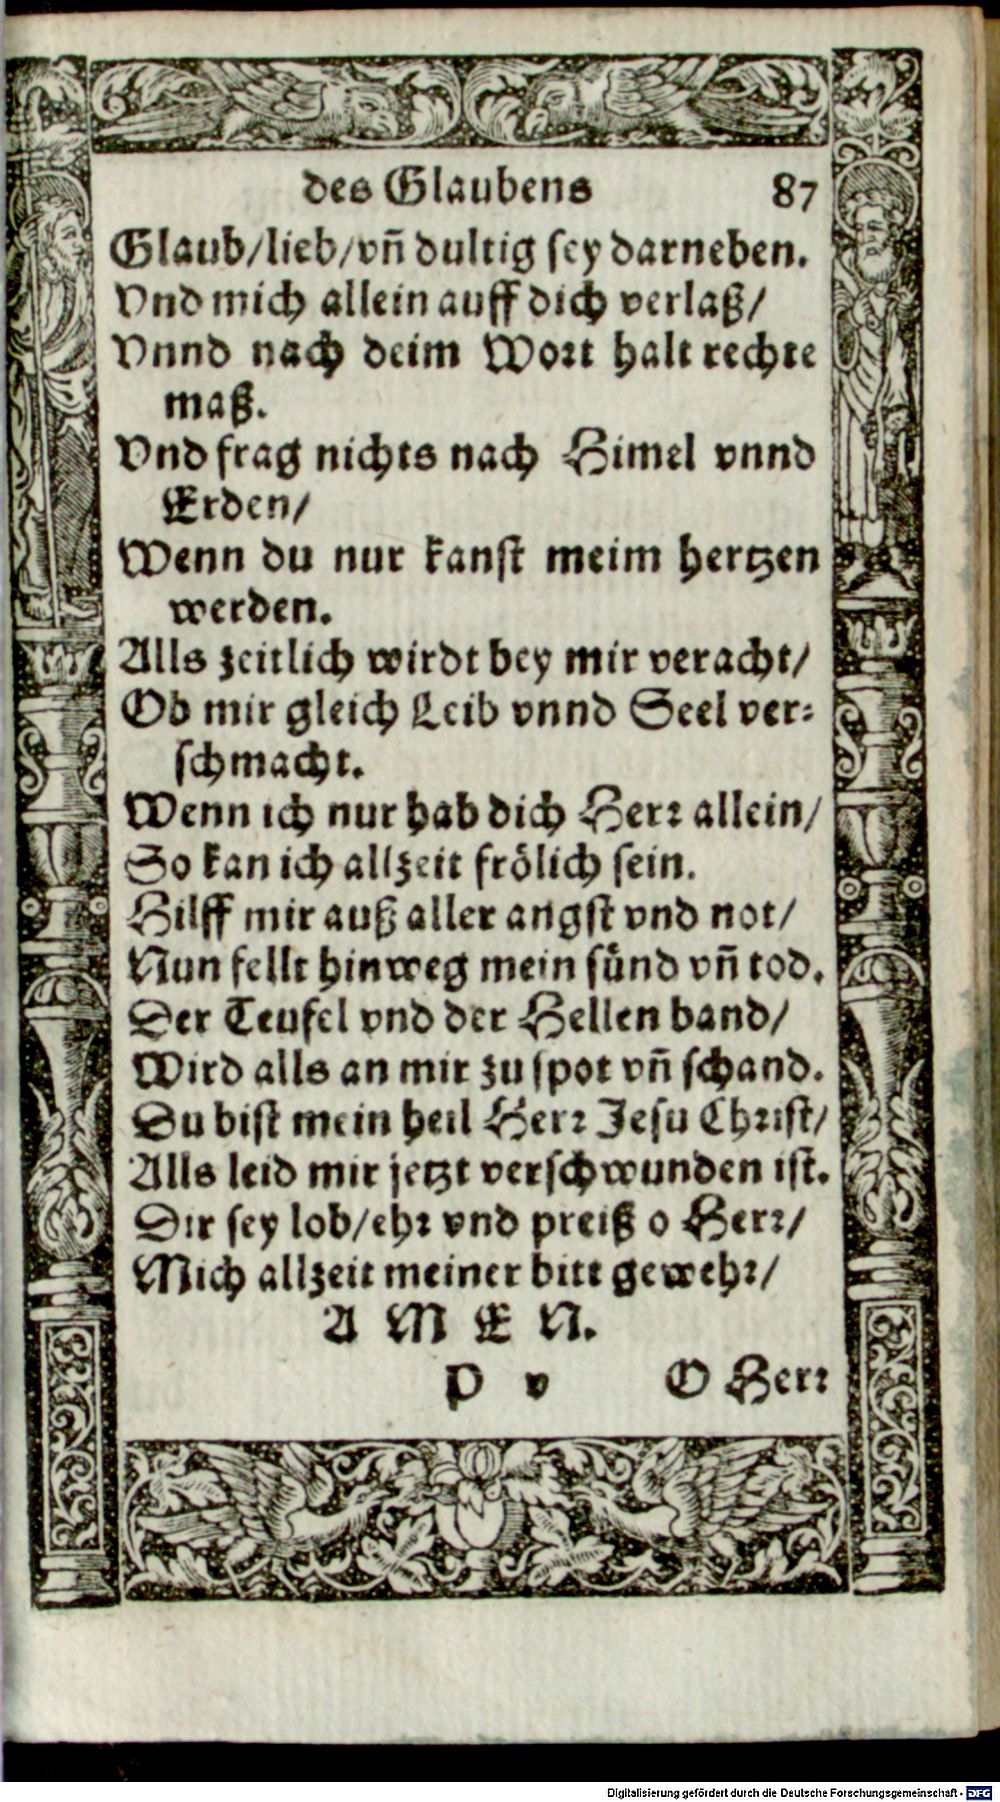 des Glaubens 87
Glaub/lieb/vñ dultig sey darneben.
Vnd mich allein auff dich verlaß/
Vnnd nach deim Wort halt rechte
maß.
Vnd frag nichts nach Himel vnnd
Erden/
Wenn du nur kanst meim hertzen
werden.
Alls zeitlich wirdt bey mir veracht/
Ob mir gleich Leib vnnd Seel ver⸗
schmacht.
Wenn ich nur hab dich Herr allein/
So kan ich allzeit frölich sein.
Hilff mir auß aller angst vnd not/
Nun fellt hinweg mein sünd vñ tod.
Der Teufel vnd der Hellen band/
Wird alls an mir zu spot vñ schand.
Du bist mein heil Herr Jesu Christ/
Alls leid mir jetzt verschwunden ist.
Dir sey lob/ehr vnd preiß o Herr/
Mich allzeit meiner bitt gewehr/
A M E N.
P v O Herr
Digitalisierung gefördert durch die Deutsche Forschungsgemeinschaft - DFG